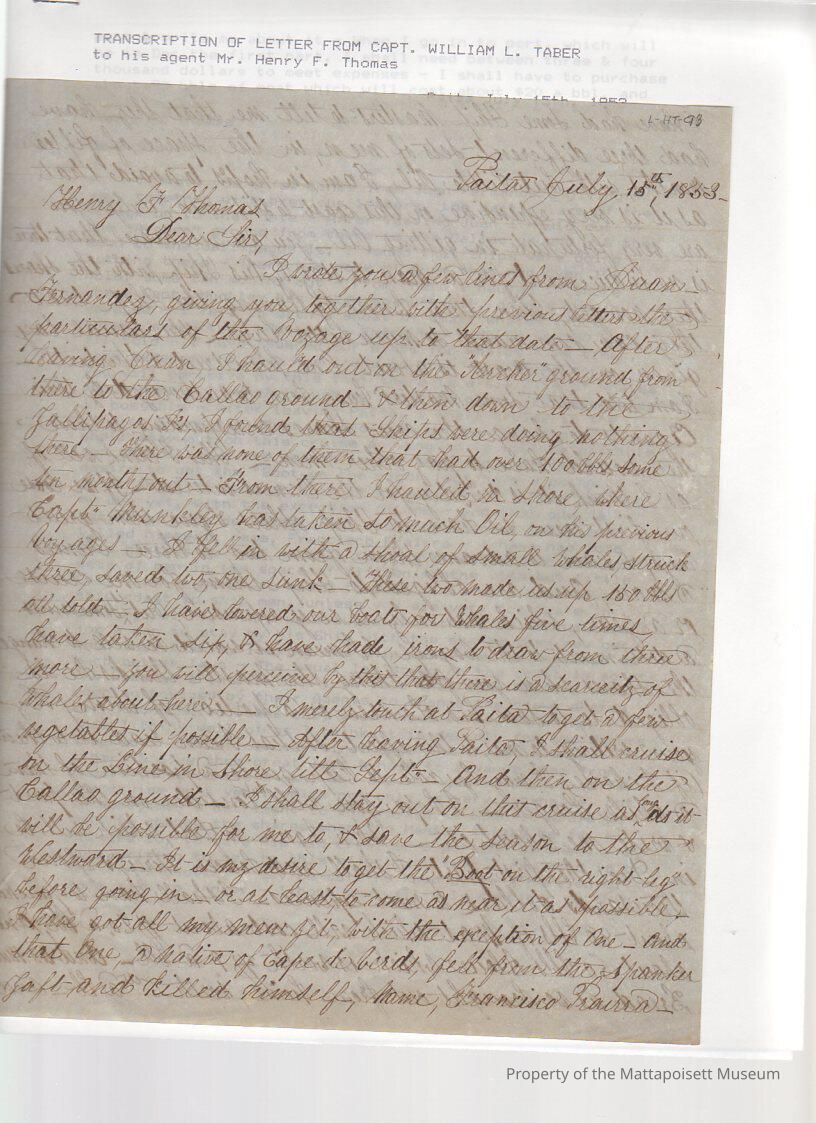 TRANSCRIPTION OF LETTER FROM CAPT. WILLIAM L. TABER
to his agent Mr. Henry F. Thomas
L-HT-93
Paita July 15th, 1853-
Henry F Thomas
Dear Sir,
I wrote you a few lines from Juan
Fernandez, giving you, together with previous letters the
particulars of the voyage up to that date— After
leaving Juan I hauld out on the "Archer" ground from
there to the Callao ground— & then down to the
Gallipagos Is, I found that Ships were doing nothing
there— There was none of them that had over 100 bbls some
ten months out— From there I hauled in shore, where
Capt" Munkley has taken so much Oil, on his previous
Voyages— I fell in with a shoal of small whales, struck
three, saved two, one sunk— These two made us up 150 bbls
all told— I have lowered our boats for Whales five times,
have taken six, & have had irons to draw from three
more— you will perceive by this that there is a scarcity of
whales about here— I merely touch at Paita to get a few
vegetables if possible— After leaving Paita, I shall cruise
on the Line in Shore till Sept"— And then on the
Callao ground— I shall stay out on this cruise as long as it
will be possible for me to, & save the season to the
Westward— It is my desire to get the "Boot on the right leg"
before going in— or at least to come as near it as possible—
I have got all my men yet, with the exception of One— and
that One, a native of Cape de Verds, fell from the Spanker
Gaft and killed himself, name, Francisco
Property of the Mattapoisett Museum